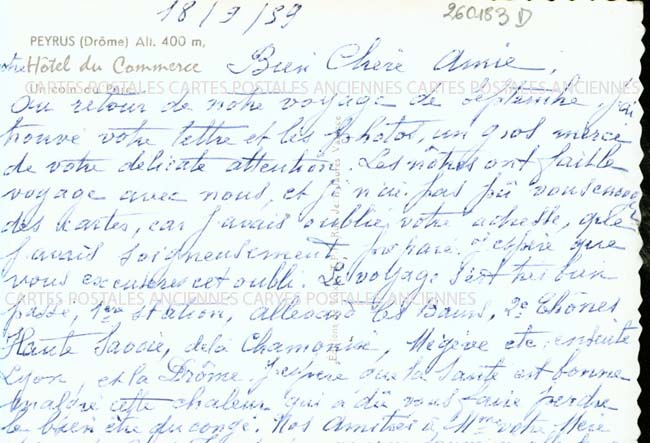 18/9/59
260183 D
PEYRUS (Drôme) Alt. 400 m,
Hôtel du Commerce
Un coin du Parc
Bien Chère Amie,
CARTES POSTALES ANCIENNES CARTES POSTALES CARTES POSTALES ANCIENNES
Au retour de notre voyage de septembre, j'ai
trouvé votre lettre et les photos, un gros merci
de votre délicate attention. Les nôtres ont faible
voyage avec nous, et je n'ai pas pû vous envoyer
des cartes, car j'avais oublié votre adresse, que
j'avais soigneusement préparé. J'espère que
vous excuserez cet oubli. Le voyage s'est très bien
CARTES POSTALES ANCIENNES CARTES POSTALES ANCIENNES
passé, 1ère station, Allevard les Bains, 2e Thônes
Haute Savoie, de là Chamonix, Mégève etc. ensuite
Lyon, et la Drôme. J'espère que la santé est bonne
malgré cette chaleur qui a dû vous faire perdre
le bien être du congé. Nos amitiés à Mme votre Mère